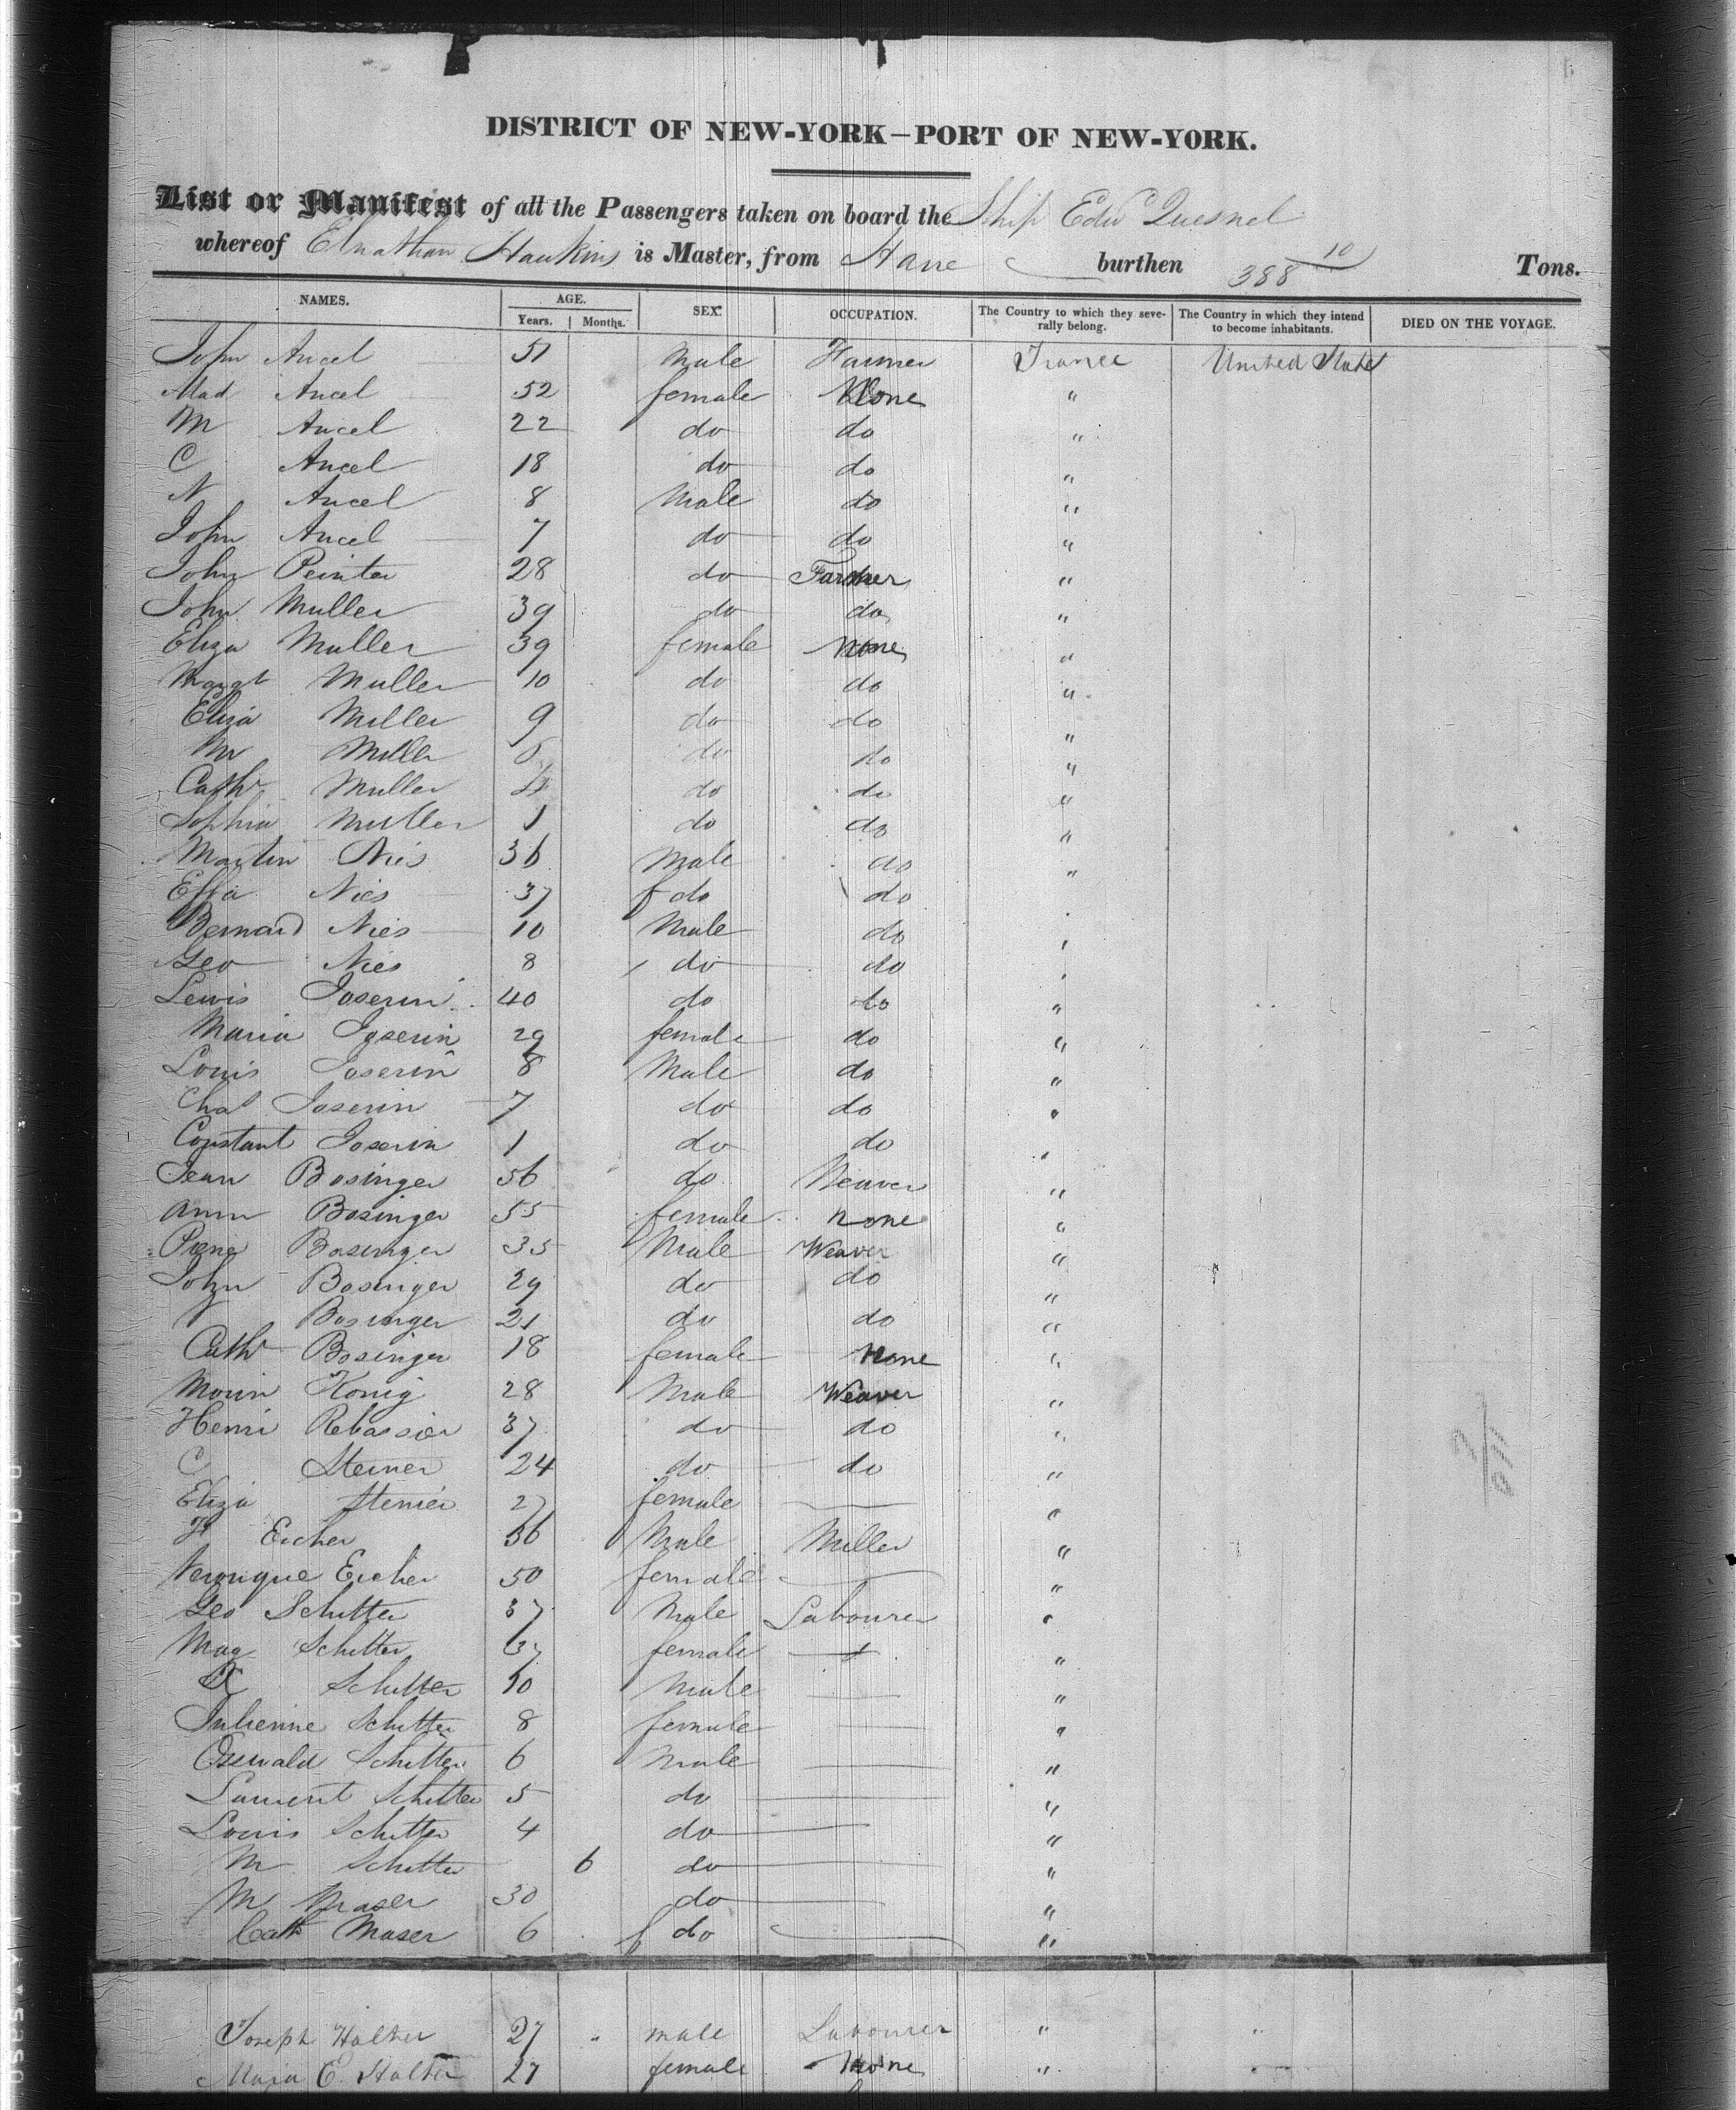 DISTRICT OF NEW-YORK—PORT OF NEW-YORK.
List or Manifest of all the Passengers taken on board the Ship Edwd Quesnel
whereof Elnathan Hawkins is Master, from Havre burthen 388 10/ Tons.
NAMES. AGE. Years. Months. SEX. OCCUPATION. The Country to which they severally belong. The Country in which they intend to become inhabitants. DIED ON THE VOYAGE.
John Ancel 51 Male Farmer France United States
Mad Ancel 52 female None "
M Ancel 22 do do "
C Ancel 18 do do "
N Ancel 8 Male do "
John Ancel 7 do do "
John Peinter 28 do Farmer "
John Muller 39 do do "
Eliza Muller 39 female None "
Margt Muller 10 do do "
Eliza Muller 9 do do "
M Muller do do "
Cath Muller 4 do do "
Sophia Muller 1 do do "
Martin Nies 36 Male do "
Effa Nies 37 f do do "
Bernard Nies 10 Male do "
Geo Nies 8 do do "
Lewis Joserin 40 do do "
Maria Joserin 29 female do "
Louis Joserin 8 Male do "
Chas Joserin 7 do do "
Constant Joserin 1 do do "
Jean Bosinger 56 do Weaver "
Ann Bosinger 55 female None "
Piere Bosinger 35 Male Weaver "
John Bosinger 29 do do "
V Bosinger 21 do do "
Cath Bosinger 18 female None "
Morin Konig 28 Male Weaver "
Henri Rebassier 37 do do "
C Steiner 24 do do "
Eliza Steiner 27 female "
F Eicher 56 Male Miller "
Veronique Eicher 50 female "
Geo Schitter 37 Male Labourer "
Mag Schitter 37 female "
Schitter 10 Male "
Julienne Schitter 8 female "
Osswald Schitter 6 Male "
Laurent Schitter 5 do "
Louis Schitter 4 do "
M Schitter 6 do "
M Maser 30 do "
Cath Maser 6 f do "
Joseph Halter 27 " male Labourer " "
Maria E. Halter 27 female None " "